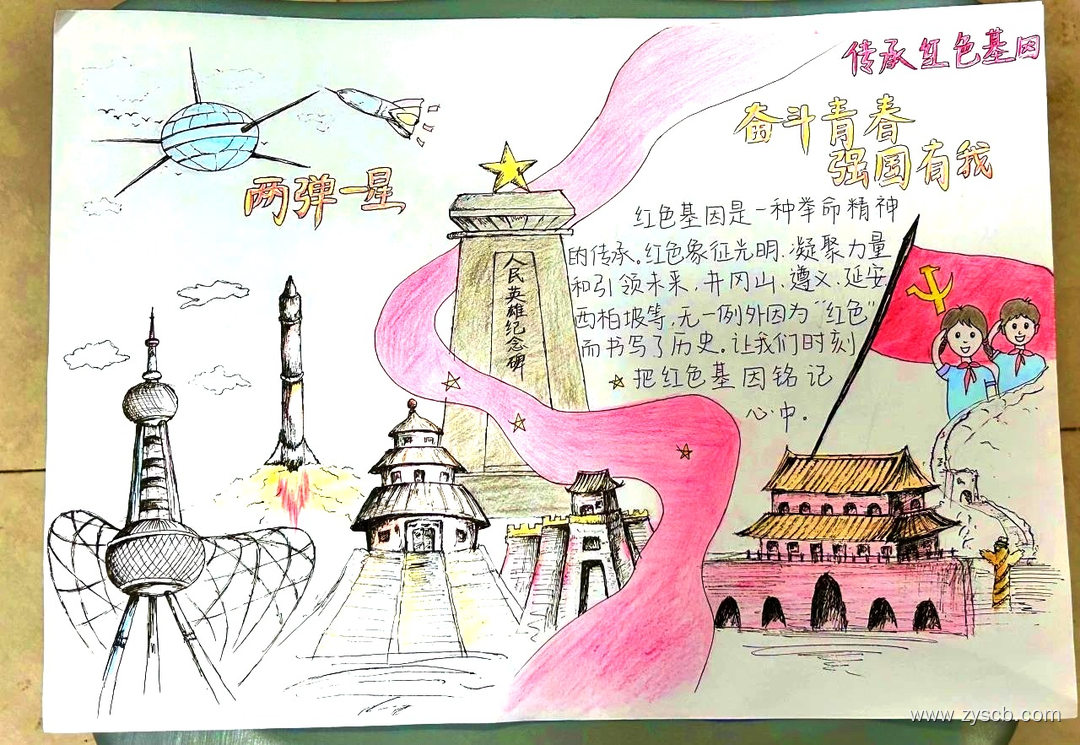 传承红色基因
奋斗青春
强国有我
两弹一星
人民英雄纪念碑
红色基因是一种举命精神
的传承。红色象征光明、凝聚力量
和引领未来,井冈山、遵义、延安、
西柏坡等,无一例外因为“红色”
而书写了历史。让我们时刻
把红色基因铭记
心中。
www.zyscb.com